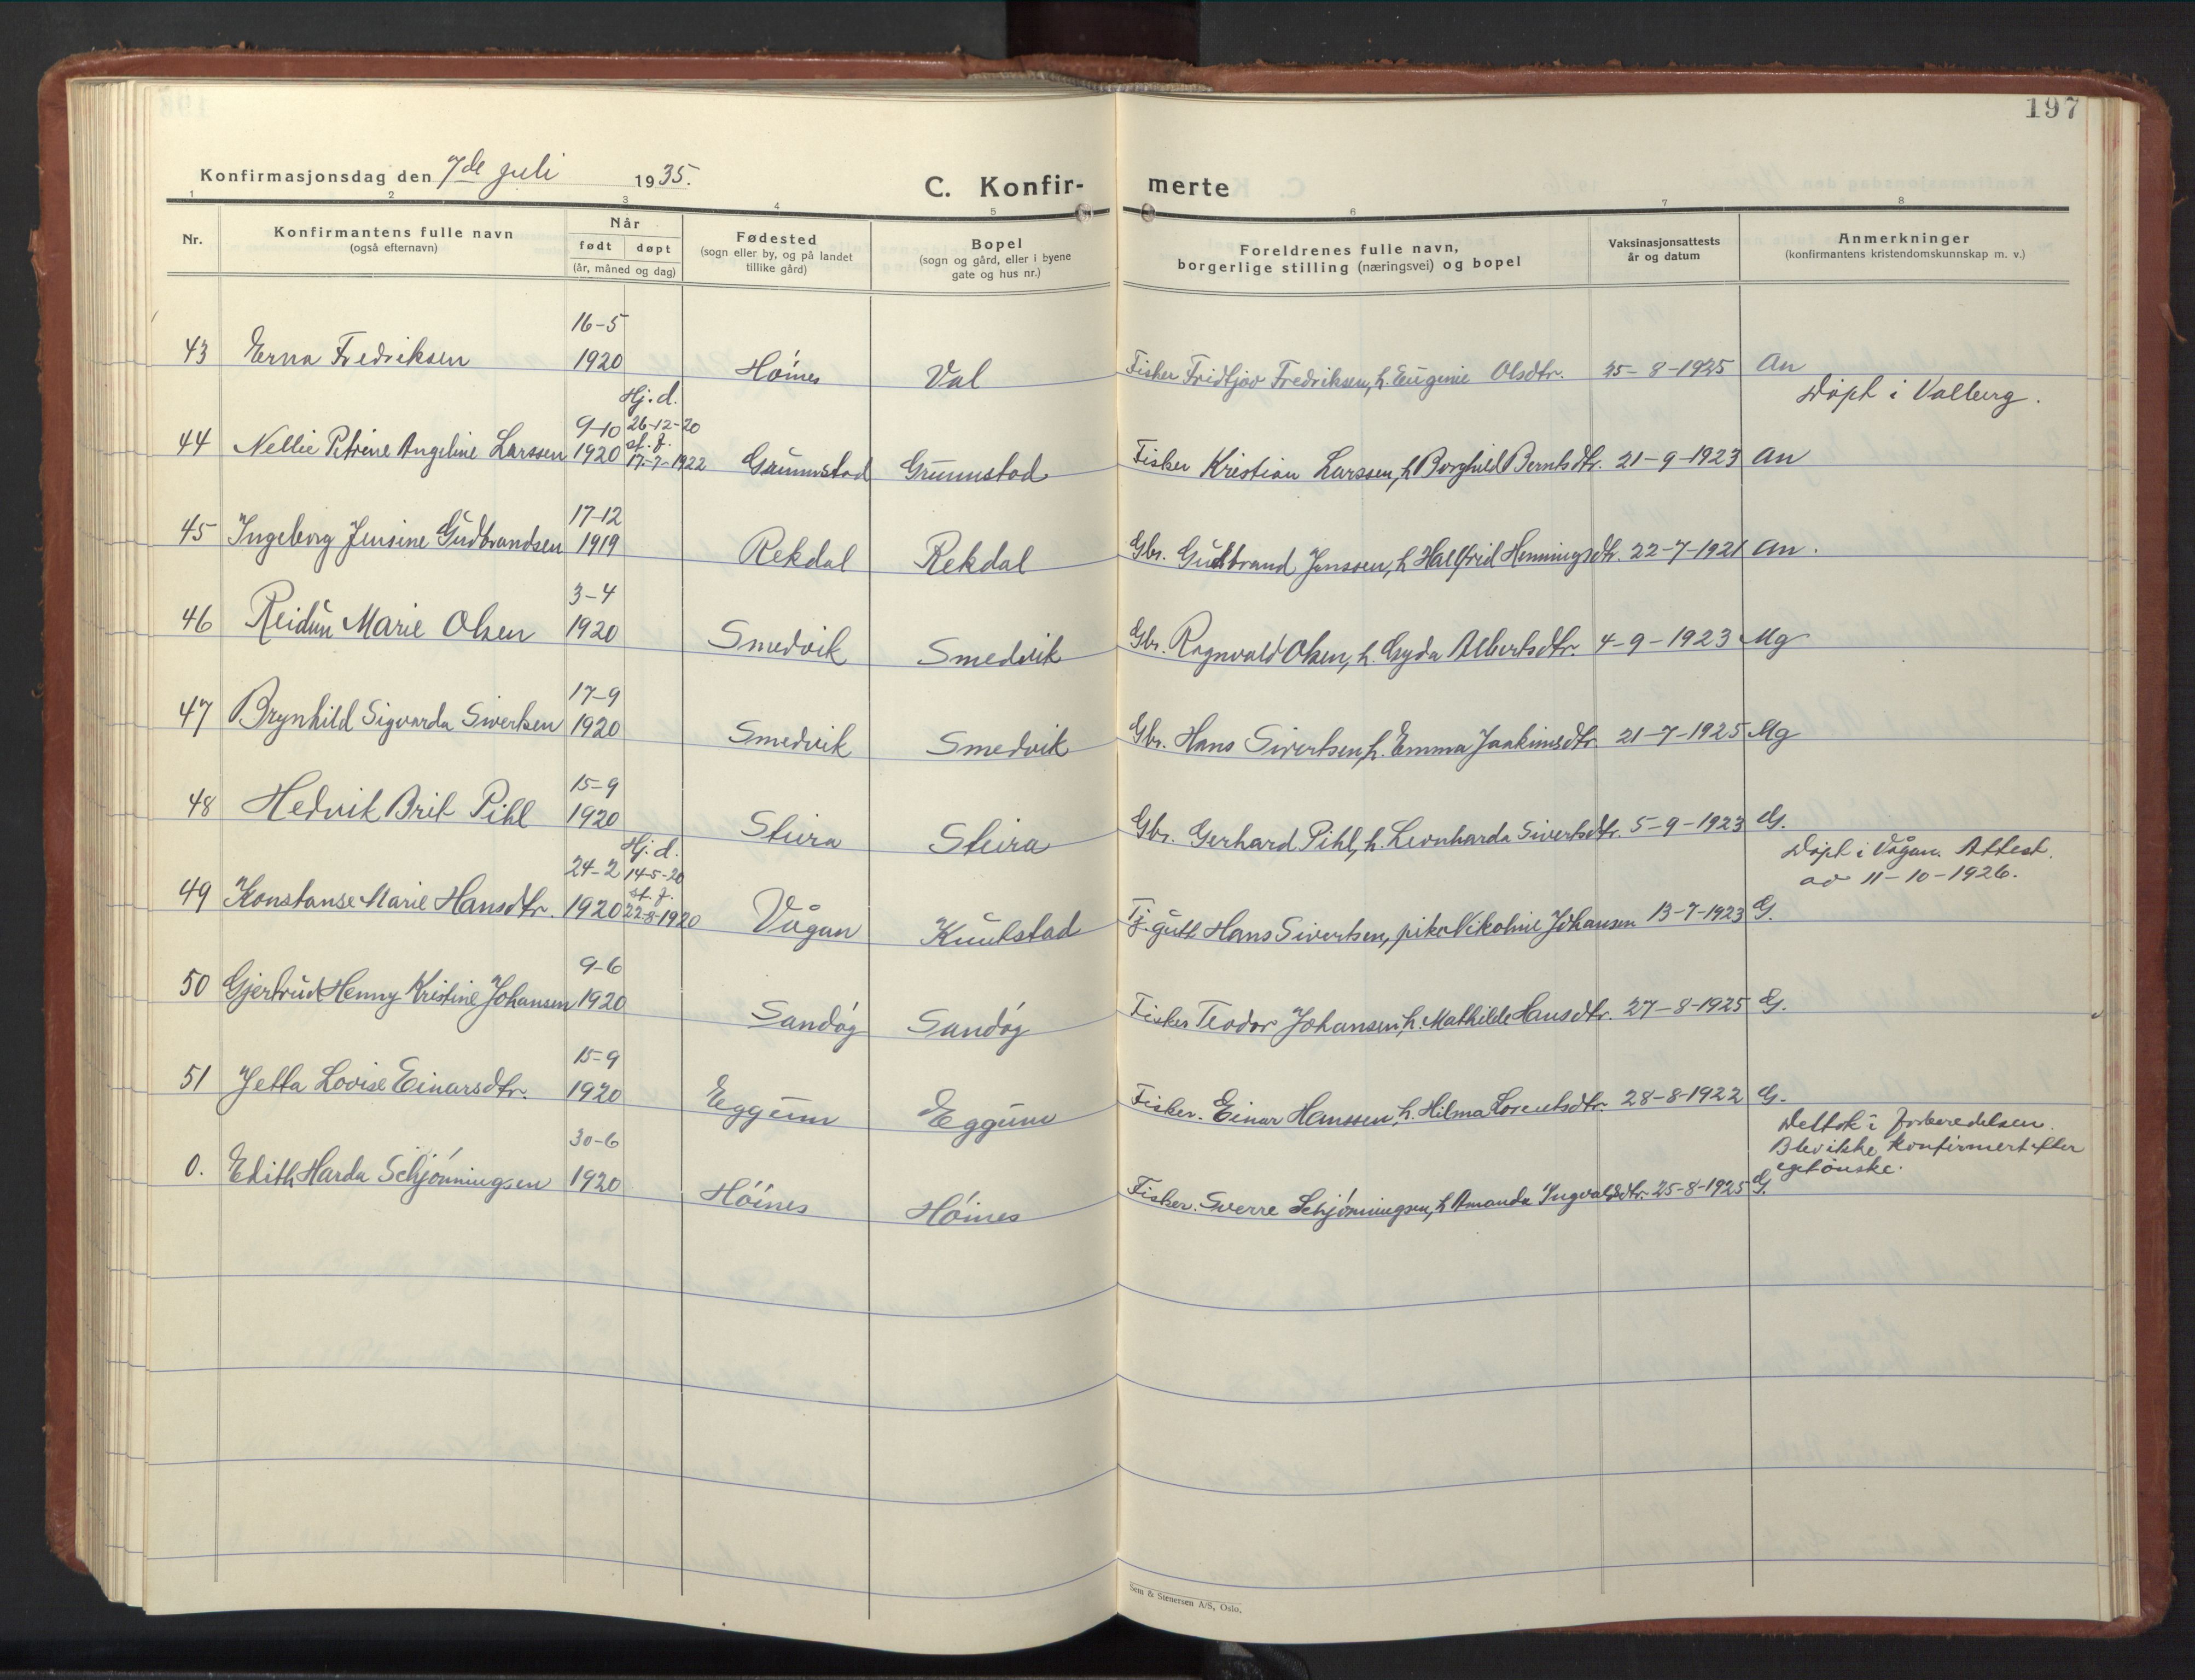 197
Konfirmasjonsdag den 7de juli 1935.
C. Konfir- merte
1 2 3 4 5 6 7 8
Nr.
Konfirmantens fulle navn
(også efternavn)
Når
født døpt
(år, måned og dag)
Fødested
(sogn eller by, og på landet
tillike gård)
Bopel
(sogn og gård, eller i byene
gate og hus nr.)
Foreldrenes fulle navn,
borgerlige stilling (næringsvei) og bopel
Vaksinasjonsattests
år og datum
Anmerkninger
(konfirmantens kristendomskunnskap m. v.)
16-5
43 Erna Fredriksen 1920 Höines Val Fisker Fridtjov Fredriksen, h. Eugenie Olsdtr. 25-8-1925 An
Döpt i Valberg.
Hj. d.
9-10 26-12-20
st. f.
44 Nellie Petrine Angeline Larssen 1920 17-7-1922 Grunnstad Grunnstad Fisker Kristian Larssen, h Borghild Berntsdtr. 21-9-1923 An
17-12
45 Ingeborg Jensine Gudbrandsen 1919 Rekdal Rekdal Gbr. Gudbrand Jenssen, h Halfrid Henningsdtr. 22-7-1921 An.
3-4
46 Reidun Marie Olsen 1920 Smedvik Smedvik Gbr. Ragnvald Olsen, h. Gyda Albertsdtr. 4-9-1923 Mg
17-9
47 Brynhild Sigvarda Sivertsen 1920 Smedvik Smedvik Gbr. Hans Sivertsen, h. Emma Joakimsdtr. 21-7-1925 Mg
15-9
48 Hedvik Brit Pihl 1920 Steira Steira Gbr. Gerhard Pihl, h. Leonharda Sivertsdtr. 5-9-1923 G.
Döpt i Vågan. Attest.
av 11-10-1926.
Hj. d.
24-2 14-5-20
st. f.
49 Konstanse Marie Hansdtr. 1920 22-8-1920 Vågan Knutstad Tj. gutt Hans Sivertsen, pike Nikoline Johansen 13-7-1923 G.
9-6
50 Gjertrud Henny Kristine Johansen 1920 Sandöy Sandöy Fisker Teodor Johansen, h. Mathilde Hansdtr. 27-8-1925 G.
15-9
51 Jetta Lovise Einarsdtr. 1920 Eggum Eggum Fisker. Einar Hanssen, h. Hilma Lorentsdtr. 28-8-1922 G.
Deltok i forberedelsen.
Blev ikke konfirmert efter
eget önske.
30-6
0. Edith Harda Schjönningsen 1920 Höines Höines Fisker. Sverre Schjönningsen, h Amanda Ingvaldsdtr. 25-8-1925 G.
Sem & Stenersen A/S, Oslo.